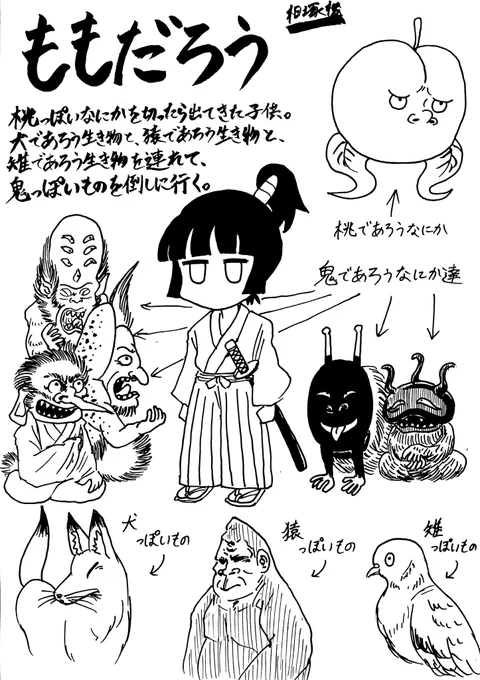 ももだろう
相塚穂
桃っぽいなにかを切ったら出てきた子供。
犬であろう生き物と、猿であろう生き物と、
雉であろう生き物を連れて、
鬼っぽいものを倒しに行く。
桃であろうなにか
鬼であろうなにか達
犬
っぽいもの
猿
っぽいもの
雉
っぽいもの